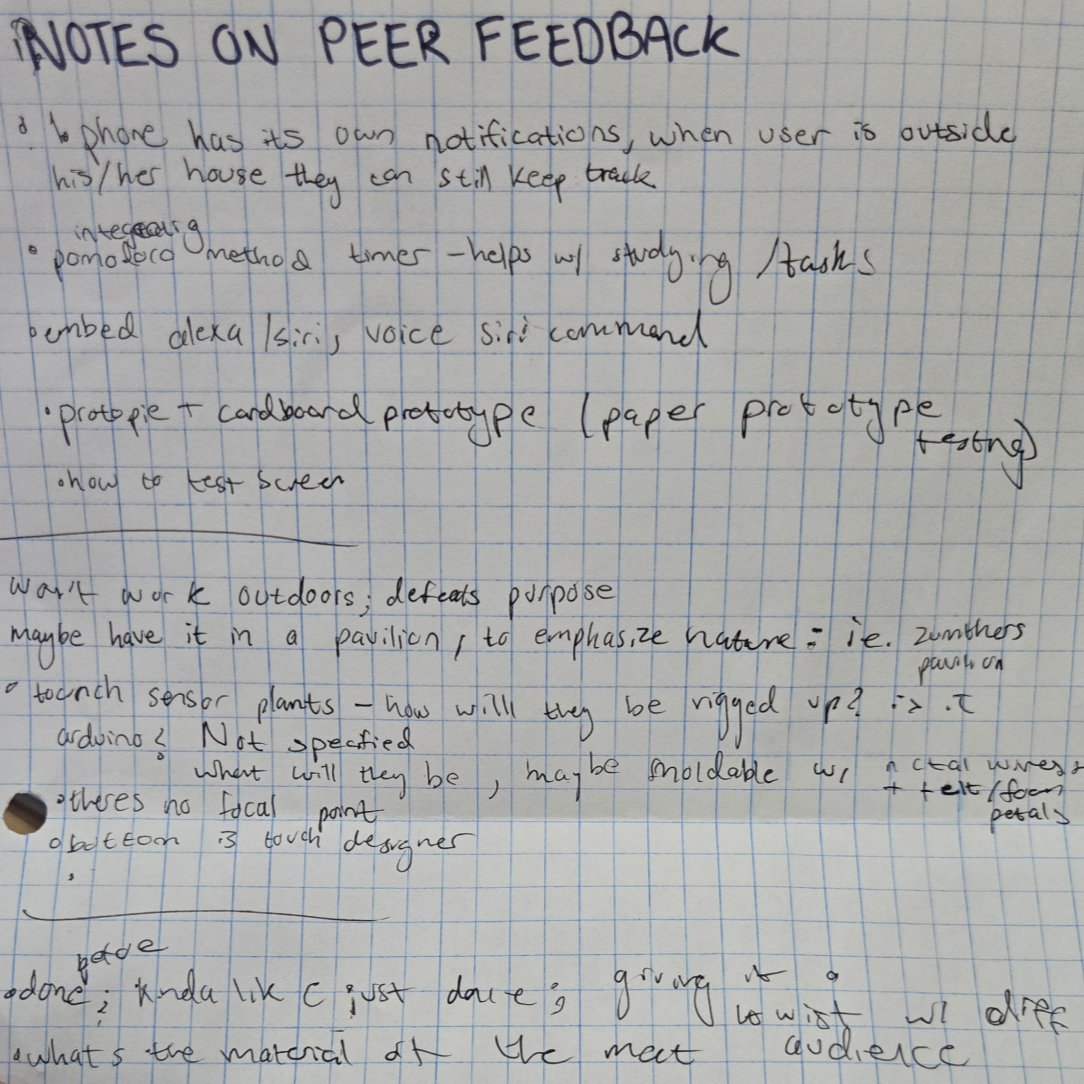 NOTES ON PEER FEEDBACK
phone has its own notifications, when user is outside
his/her house they can still keep track
integrating
pomodoro method timer - helps w/ studying /tasks
embed alexa /siri, voice siri command
protopie + cardboard prototype (paper prototype
testng)
how to test screen
won't work outdoors; defeats purpose
maybe have it in a pavilion, to emphasize nature = ie. zumthers
pavilion
tounch sensor plants - how willl they be rigged up?
arduino? Not specified
what will they be, maybe moldable w/ wires
+ felt/foam
petals
theres no focal point
bottom is touch designer
done; kinda like just dance; giving it a
twist w/ diff
what's the material of the mat audience